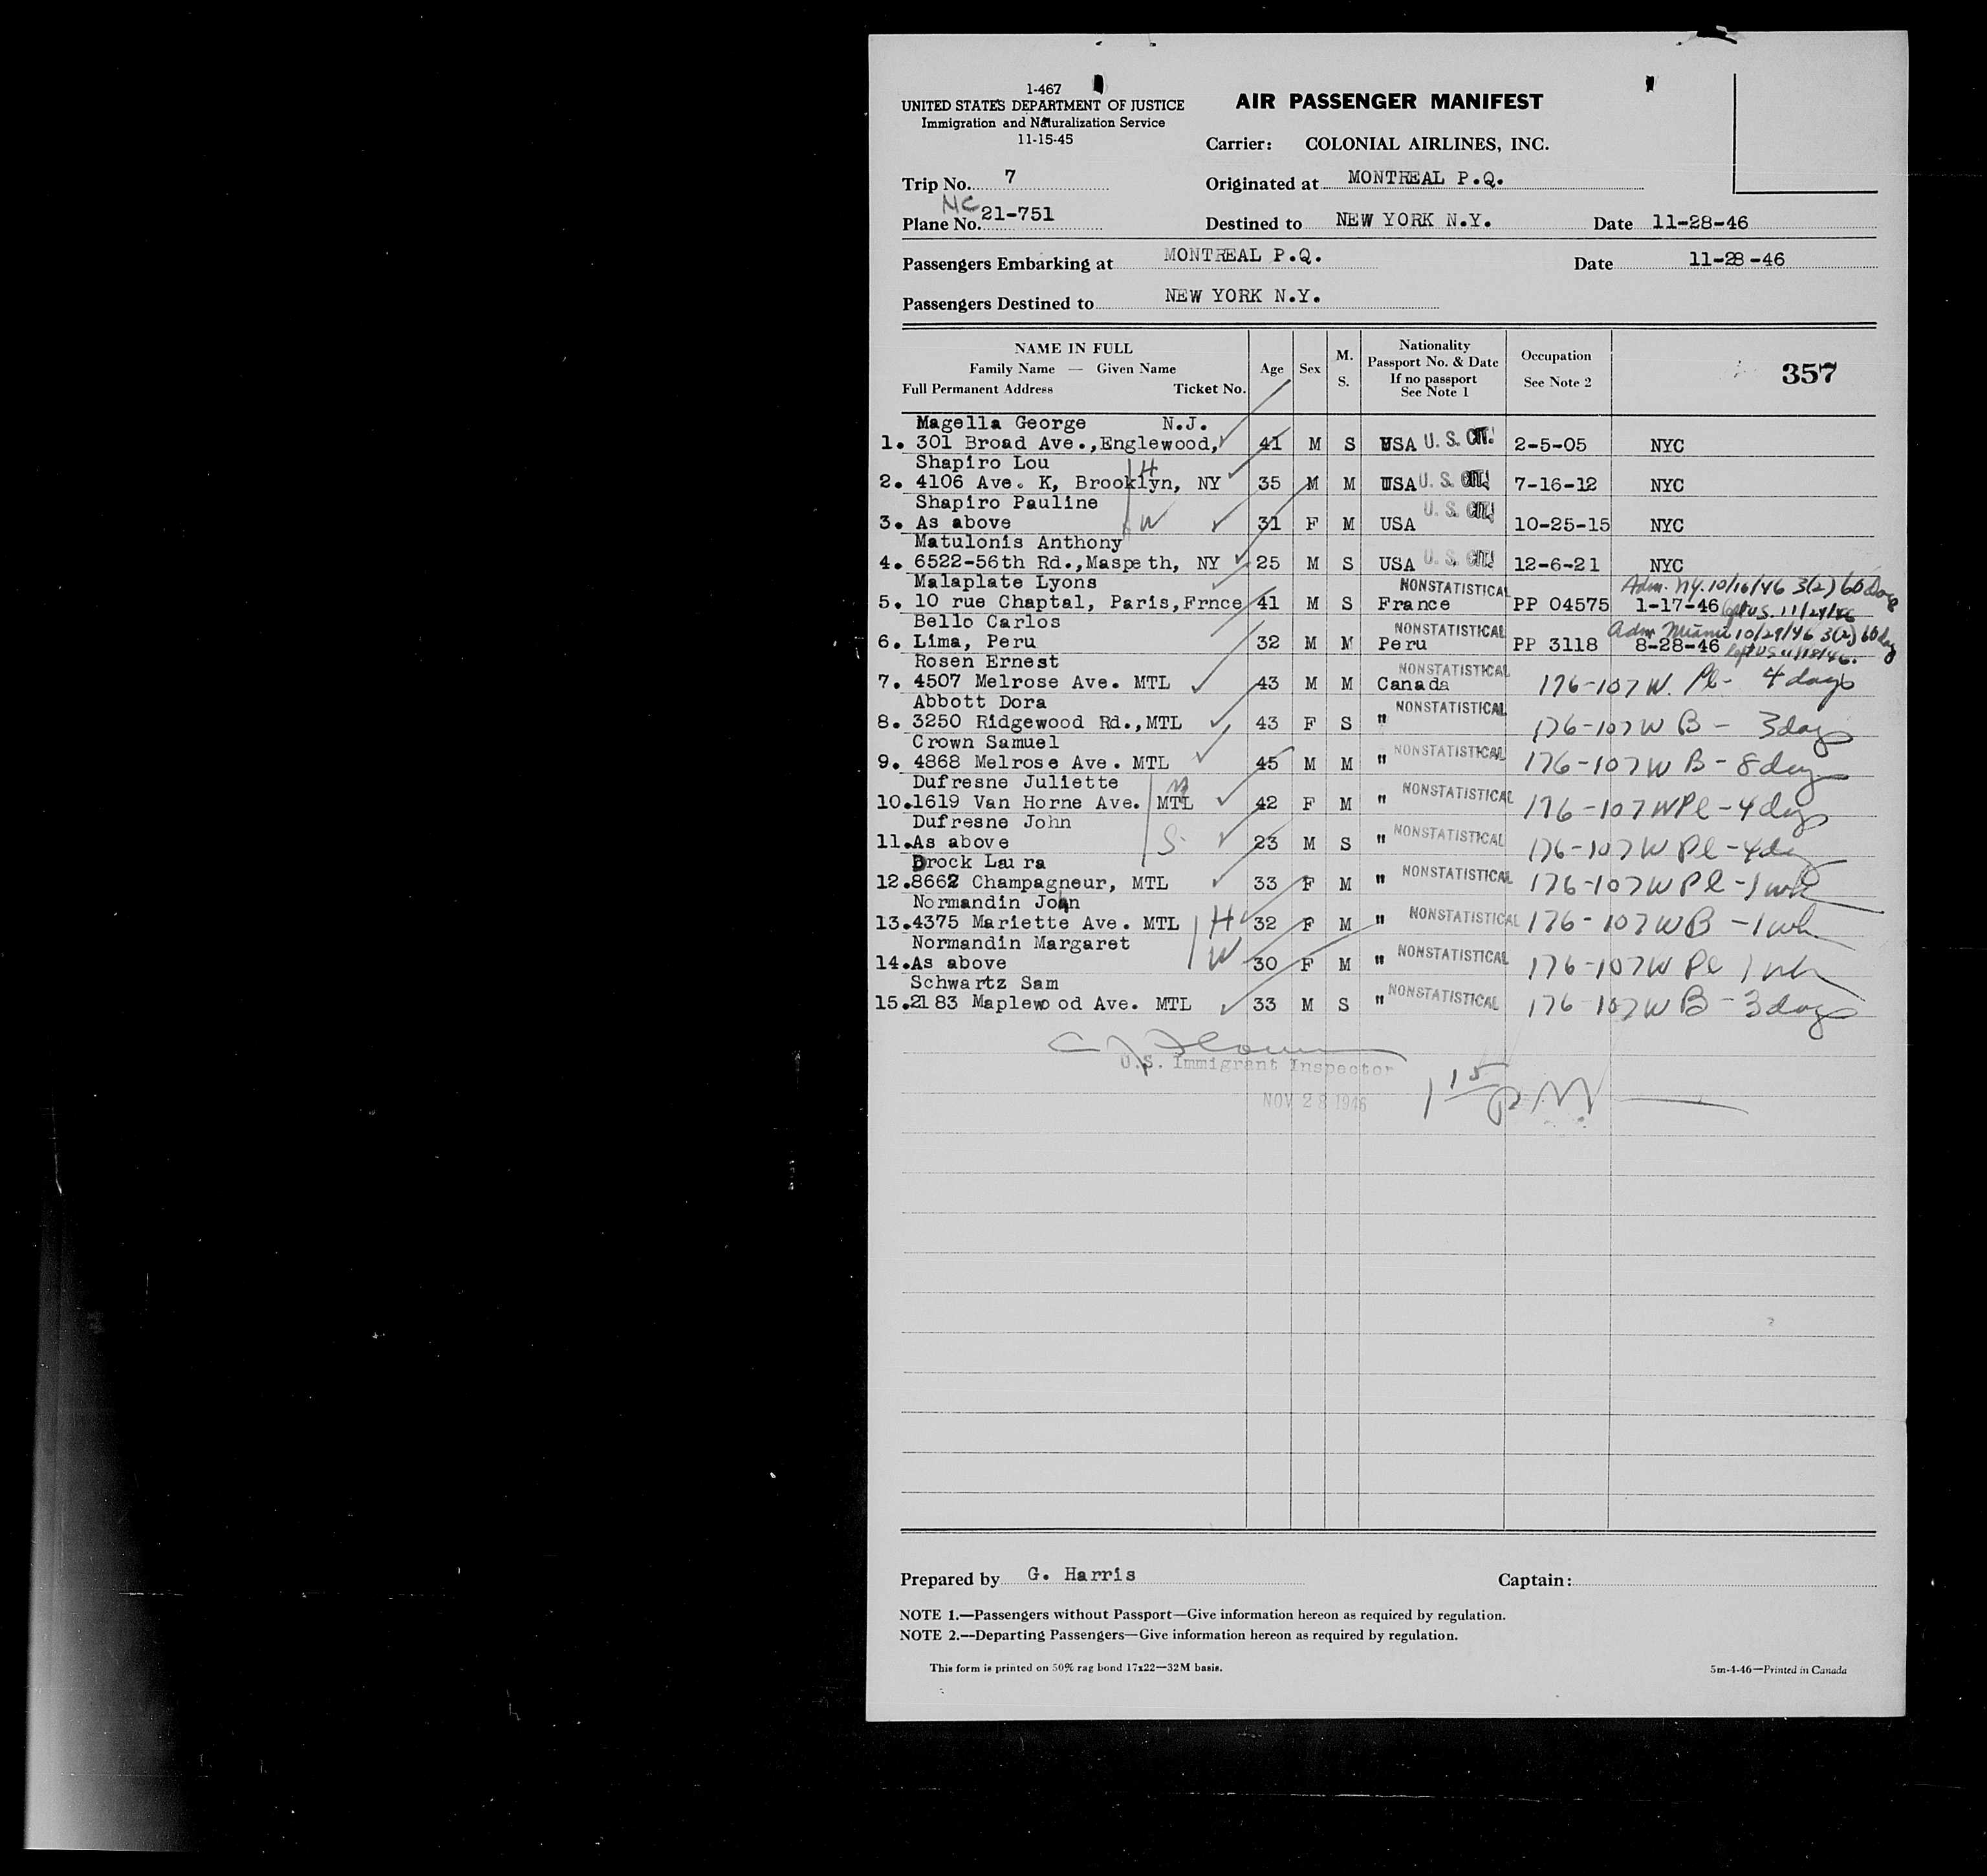 1-467
UNITED STATES DEPARTMENT OF JUSTICE
Immigration and Naturalization Service
11-15-45
AIR PASSENGER MANIFEST
Carrier: COLONIAL AIRLINES, INC.
Trip No. 7
Originated at MONTREAL P.Q.
NC
Plane No. 21-751
Destined to NEW YORK N.Y. Date 11-28-46
Passengers Embarking at MONTREAL P.Q. Date 11-28-46
Passengers Destined to NEW YORK N.Y.
NAME IN FULL
Family Name — Given Name
Full Permanent Address Ticket No.
Age
Sex
M.
S.
Nationality
Passport No. & Date
If no passport
See Note 1
Occupation
See Note 2
357
Magella George N.J.
1. 301 Broad Ave.,Englewood, 41 M S USA U. S. CIT. 2-5-05 NYC
Shapiro Lou H
2. 4106 Ave. K, Brooklyn, NY 35 M M USA U. S. CIT. 7-16-12 NYC
Shapiro Pauline U. S. CIT.
3. As above W 31 F M USA 10-25-15 NYC
Matulonis Anthony
4. 6522-56th Rd.,Maspeth, NY 25 M S USA U. S. CIT. 12-6-21 NYC
Malaplate Lyons NONSTATISTICAL Adm. NY. 10/16/46 3(2) 60 days
5. 10 rue Chaptal, Paris,Frnce 41 M S France PP 04575 1-17-46
Bello Carlos NONSTATISTICAL Adm Miami 10/29/46 3(2) 60 day
6. Lima, Peru 32 M M Peru PP 3118 8-28-46 left US 11/18/46.
Rosen Ernest NONSTATISTICAL
7. 4507 Melrose Ave. MTL 43 M M Canada 176-107 W. Pl- 4 days
Abbott Dora NONSTATISTICAL
8. 3250 Ridgewood Rd.,MTL 43 F S " 176-107 W B - 3 days
Crown Samuel NONSTATISTICAL
9. 4868 Melrose Ave. MTL 45 M M " 176-107 W B - 8 days
Dufresne Juliette M NONSTATISTICAL
10.1619 Van Horne Ave. MTL 42 F M " 176-107 W Pl - 4 days
Dufresne John NONSTATISTICAL
11.As above S 23 M S " 176-107 W Pl - 4 day
Brock Laura NONSTATISTICAL
12.8662 Champagneur, MTL 33 F M " 176-107 W Pl - 1 wk
Normandin John
13.4375 Mariette Ave. MTL H 32 F M " NONSTATISTICAL 176-107 W B - 1 wk
Normandin Margaret NONSTATISTICAL
14.As above W 30 F M " 176-107 W Pl 1 wk
Schwartz Sam NONSTATISTICAL
15.2183 Maplewood Ave. MTL 33 M S " 176-107 W B - 3 days
U.S. Immigrant Inspector
NOV 28 1946
1 15 P.M.
Prepared by G. Harris Captain:
NOTE 1.—Passengers without Passport—Give information hereon as required by regulation.
NOTE 2.—Departing Passengers—Give information hereon as required by regulation.
This form is printed on 50% rag bond 17x22—32M basis.
5m-4-46—Printed in Canada